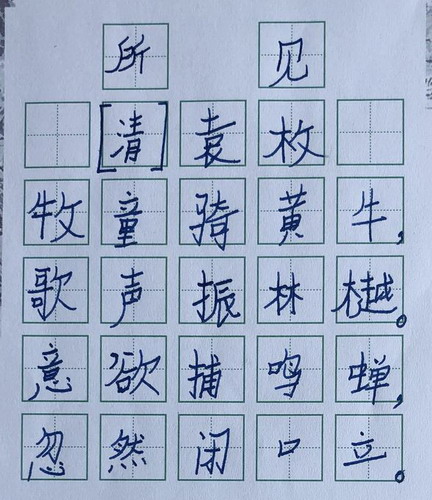 所见
[清]袁枚
牧童骑黄牛,
歌声振林樾。
意欲捕鸣蝉,
忽然闭口立。